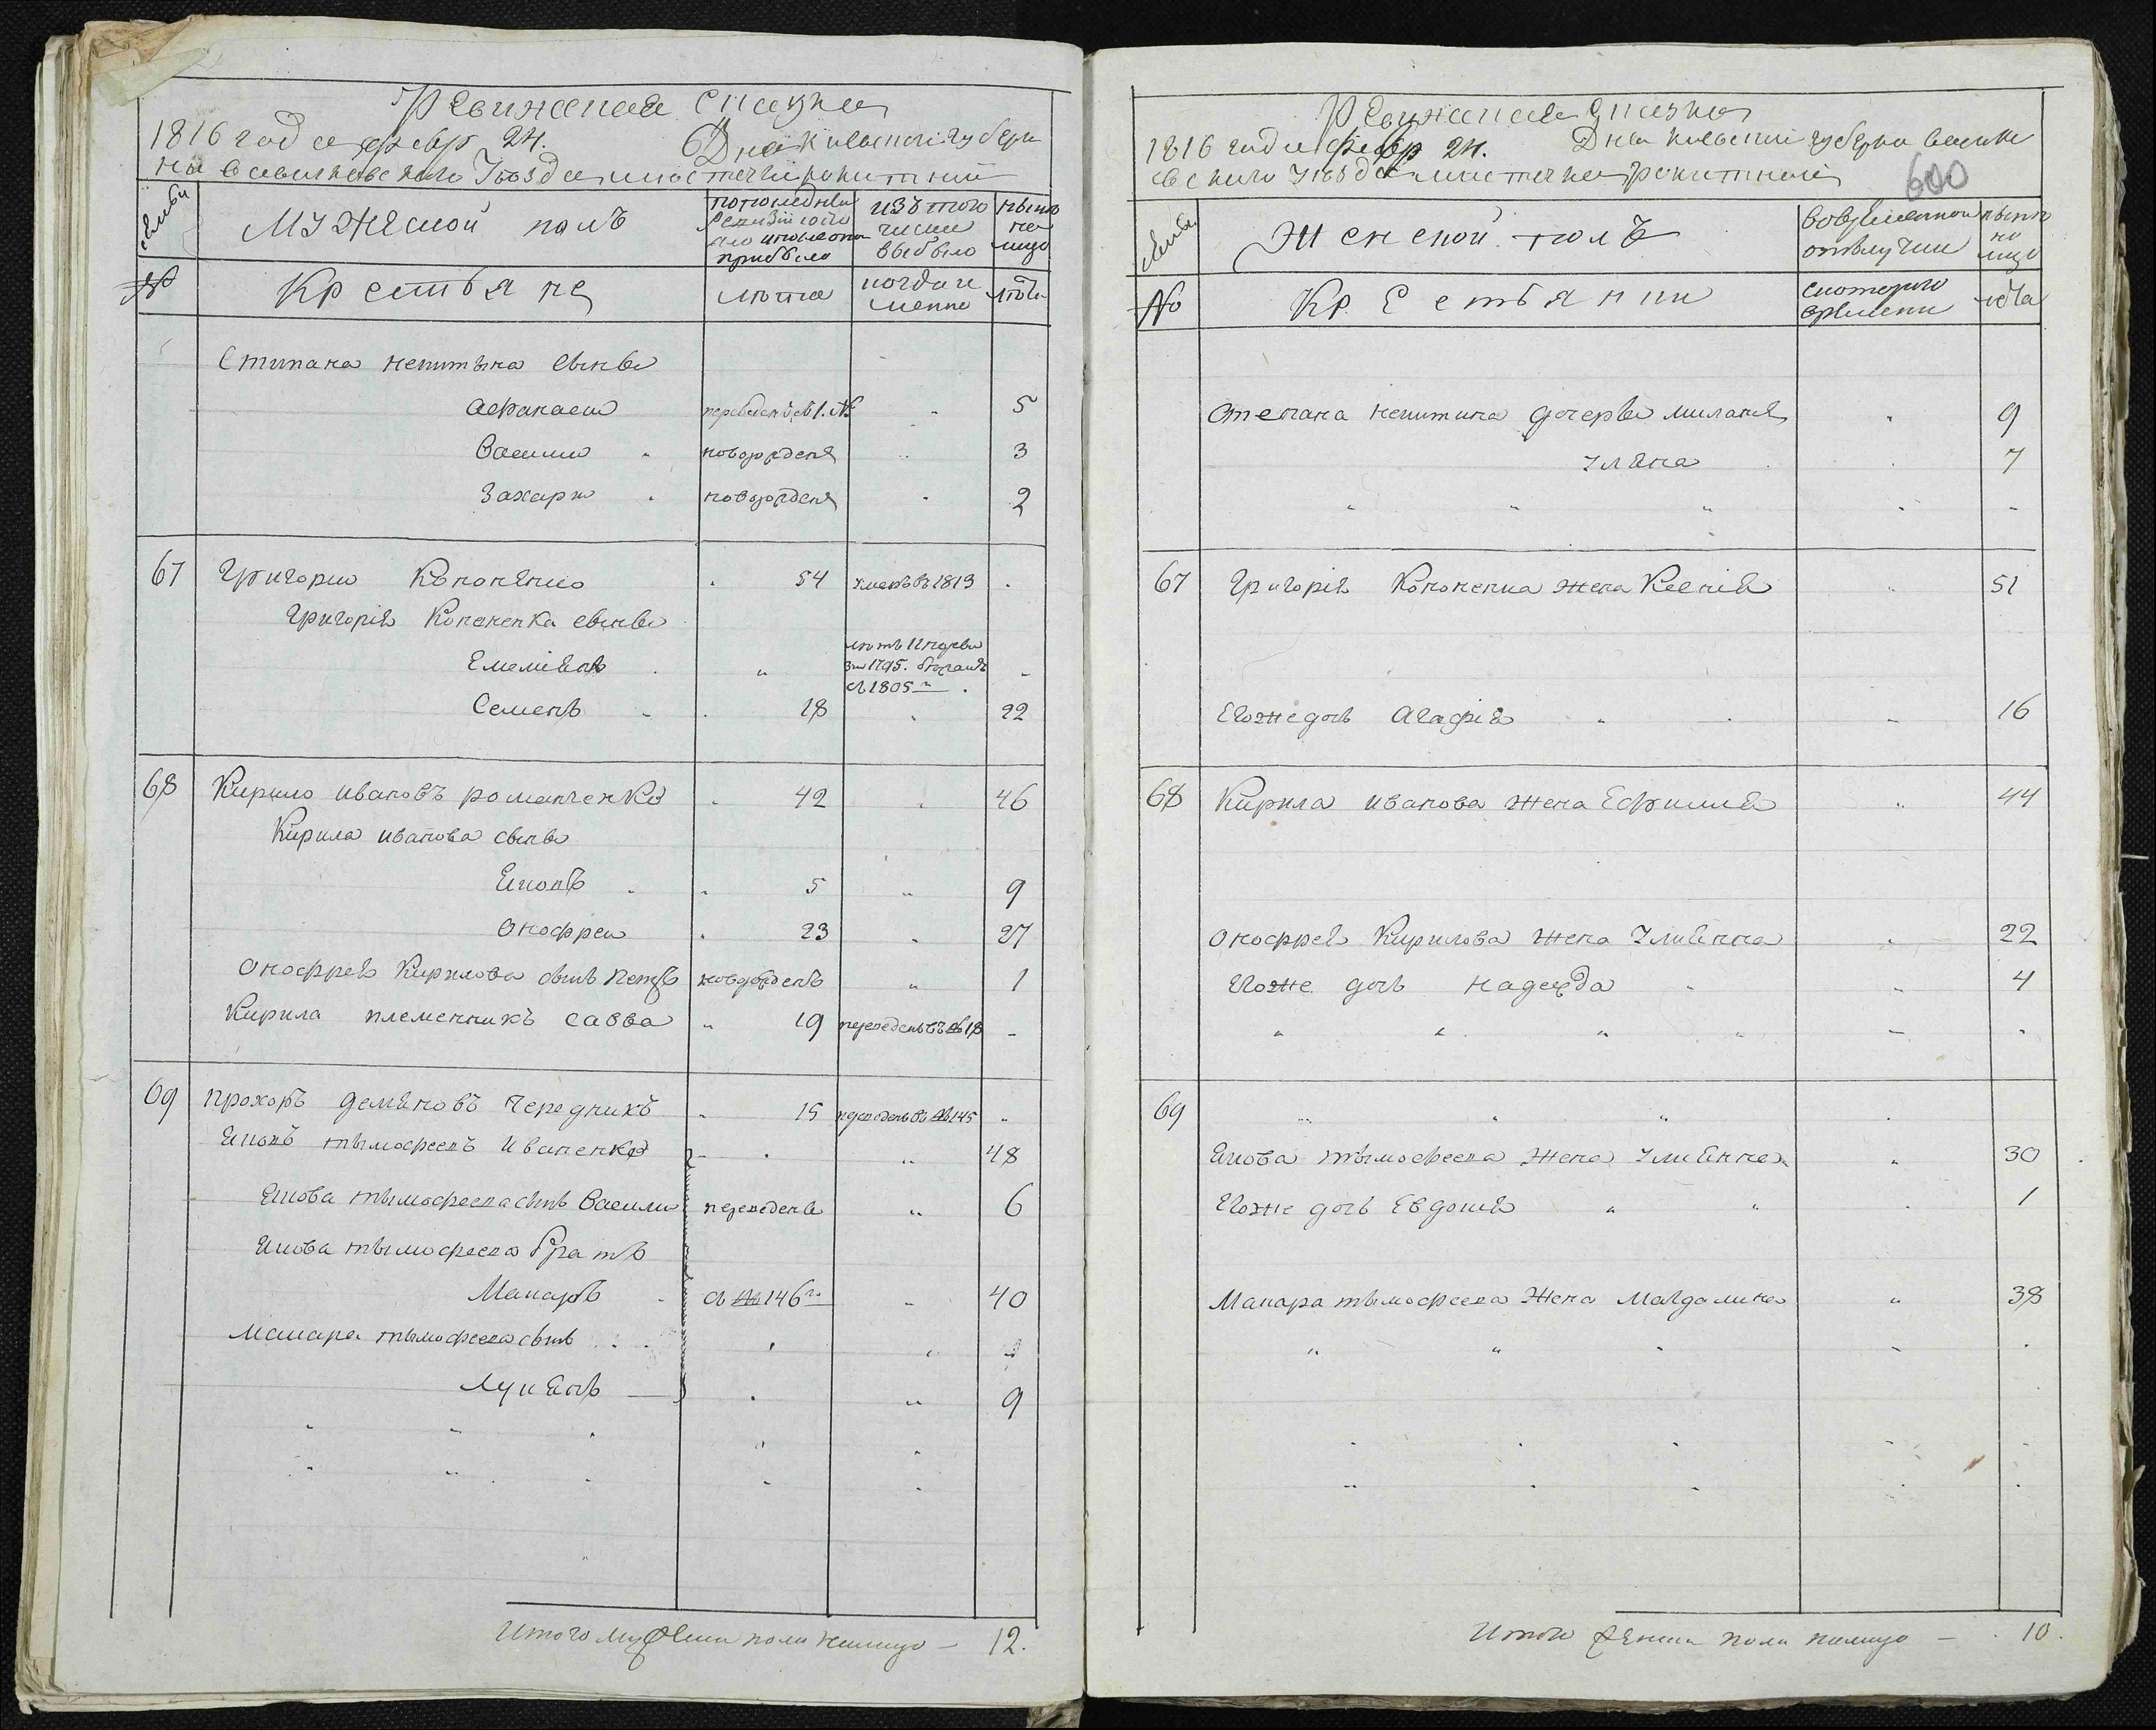 Ревижская сказка
1816 года февр 24. Дня Киевской губерн
ни васильковского Уезда местечки рокитной
семьи
Мужеской полъ
по последней ревизии состояло и после оно прибыло
изъ того числа выбыло
ныне на лицо
№
Крестьяне
лета
когда именно
лета
Стипана никитына сыны
Афанасш переведенъ съ 1. № " 5
Василии " новорожденя " 3
Захарш " новорожденя " 2
67 Григорш Кононенко 54 умеръ въ 1813
Григорія Кононенка сыны
Емеліянъ "
1795.
съ 1805
Семенъ 18 " 22
68 Кирило ивановъ романченко 42 " 46
Кирила иванова сыны
Яковъ 5 " 9
Онофреи 23 " 27
Онофрея Кирилова сынъ петръ новорожденъ " 1
Кирила племенникъ савва " 19 переведенъ въ № 18 -
69 прохоръ демяновъ чередникъ " 15 переведенъ въ № 145 "
Яковъ тымофеевъ Иваненко " 48
Якова тымофеева сынъ Василии переведены " 6
Якова тымофеева братъ
Макаръ съ № 146го " 40
Макара тымофеева сынъ
Лукянъ " 9
Итого мужеска пола налицо - 12.
Ревижская Сказка
1816 года февр 24. Дня киевской губерни васильк
овского уезда местечка рокитной
600
семьи
Женской полъ
во временной отлучки
ныне на лицо
№
Крестьянки
с которого времени
лета
Степана никитина дочеры миланя " 9
Уляна 7
67 Григорія Кононенка жена Ксенія " 51
Егоже дочь Агафія " 16
68 Кирила иванова жена Ефимия " 44
Онофрея Кирилова жена Улиянна " 22
Егоже дочь надежда " 4
69
Якова тымофеева жена Улиянна " 30
Егоже дочь Евдокия " 1
Макара тымофеева жена Магдалина " 38
Итого женска пола налицо - 10.